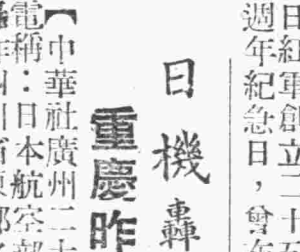 日紅軍創立二十
週年紀念日，曾在
日機轟
重慶昨
【中華社廣州二十
電稱：日本航空部